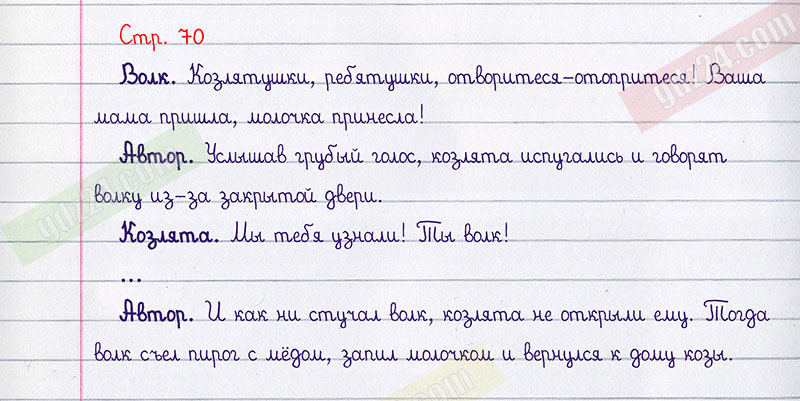 Стр. 70
Волк. Козлятушки, ребятушки, отворитеся-отопритеся! Ваша
мама пришла, молочка принесла!
Автор. Услышав грубый голос, козлята испугались и говорят
волку из-за закрытой двери.
Козлята. Мы тебя узнали! Ты волк!
...
Автор. И как ни стучал волк, козлята не открыли ему. Тогда
волк съел пирог с мёдом, запил молочком и вернулся к дому козы.
gdz24.com
gdz24.com